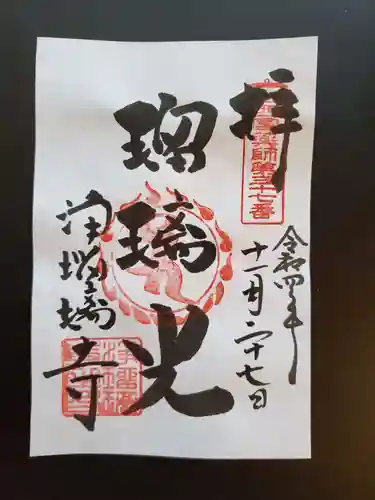 拝
西国薬師第三十七番
令和四年
十一月二十七日
瑠璃光
浄瑠璃寺